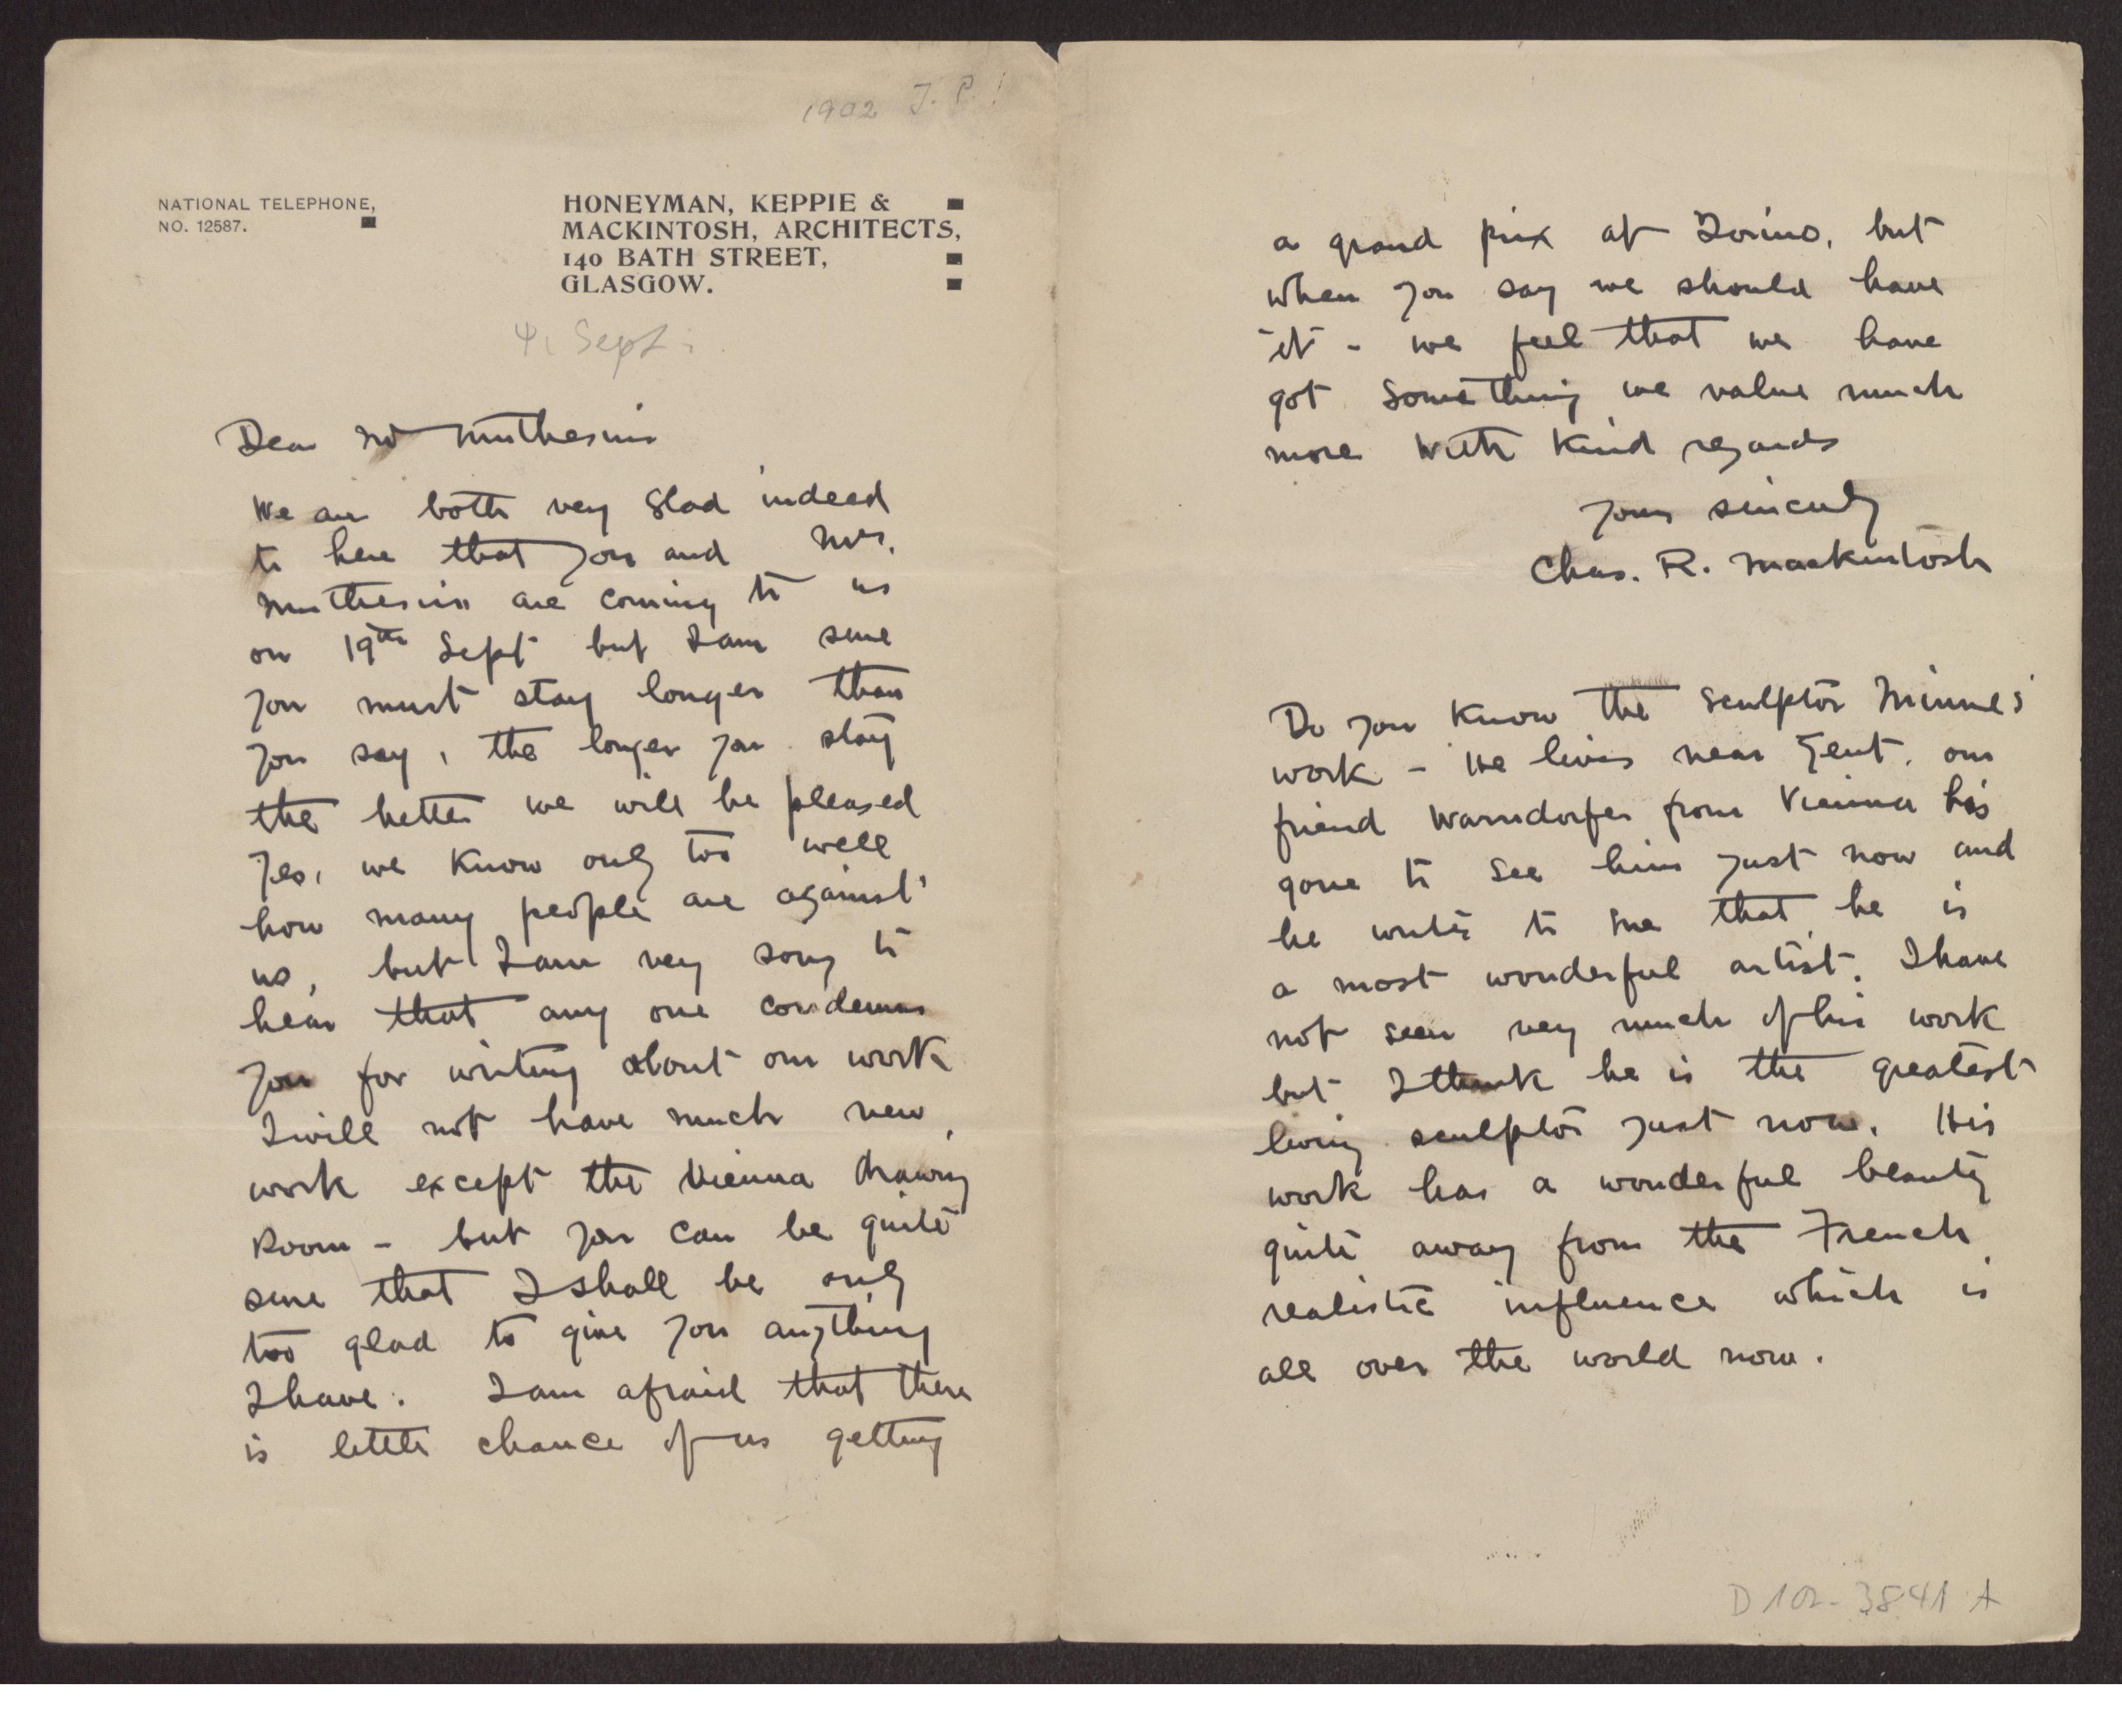 1902 J. P. !
NATIONAL TELEPHONE,
NO. 12587.
HONEYMAN, KEPPIE &
MACKINTOSH, ARCHITECTS,
140 BATH STREET,
GLASGOW.
4. Sept:
Dear Mr Muthesius
We are both very glad indeed
to here that you and Mrs.
Muthesius are coming to us
on 19th Sept but I am sure
you must stay longer than
you say, the longer you stay
the better we will be pleased
Yes, we know only too well
how many people are against
us, but I am very sorry to
hear that any one condemns
you for writing about our work
I will not have much new
work except the Vienna drawing
Room - but you can be quite
sure that I shall be only
too glad to give you anything
I have. I am afraid that there
is little chance of us getting
a grand prix at Torino, but
when you say we should have
it - we feel that we have
got something we value much
more With Kind regards
Yours sincerely
Chas. R. Mackintosh
Do you know the sculptor Minnes'
work - He lives near Gent. our
friend Warndorfer from Vienna has
gone to see him just now and
he writes to me that he is
a most wonderful artist. I have
not seen very much of his work
but I think he is the greatest
living sculptor just now. His
work has a wonderful beauty
quite away from the French
realistic influence which is
all over the world now.
D 102-3841 A